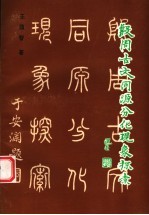 殷周古文同源分化现象探索
殷周古文
同原分化
現象探索
于安瀾題
王蕴智 著